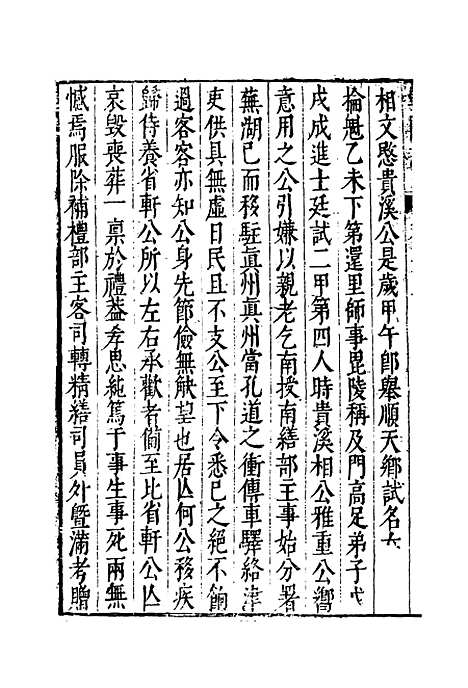 相文愍貴溪公是歲甲午卽舉順天鄉試名在
掄魁乙未下第還里師事毘陵稱及門高足弟子戊
戌成進士廷試二甲第四人時貴溪相公雅重公嚮
意用之公引嫌以親老乞南授南繕部主事始分署
蕪湖已而移駐眞州眞州當孔道之衝傳車驛絡津
吏供具無虛日民且不支公至下令悉已之絕不餉
過客客亦知公身先節儉無觖望也居亾何公移疾
歸侍養省軒公所以左右承歡者備至比省軒公亾
哀毀喪葬一禀於禮葢孝思純篤于事生事死兩無
憾焉服除補禮部主客司轉精繕司員外曁滿考贈